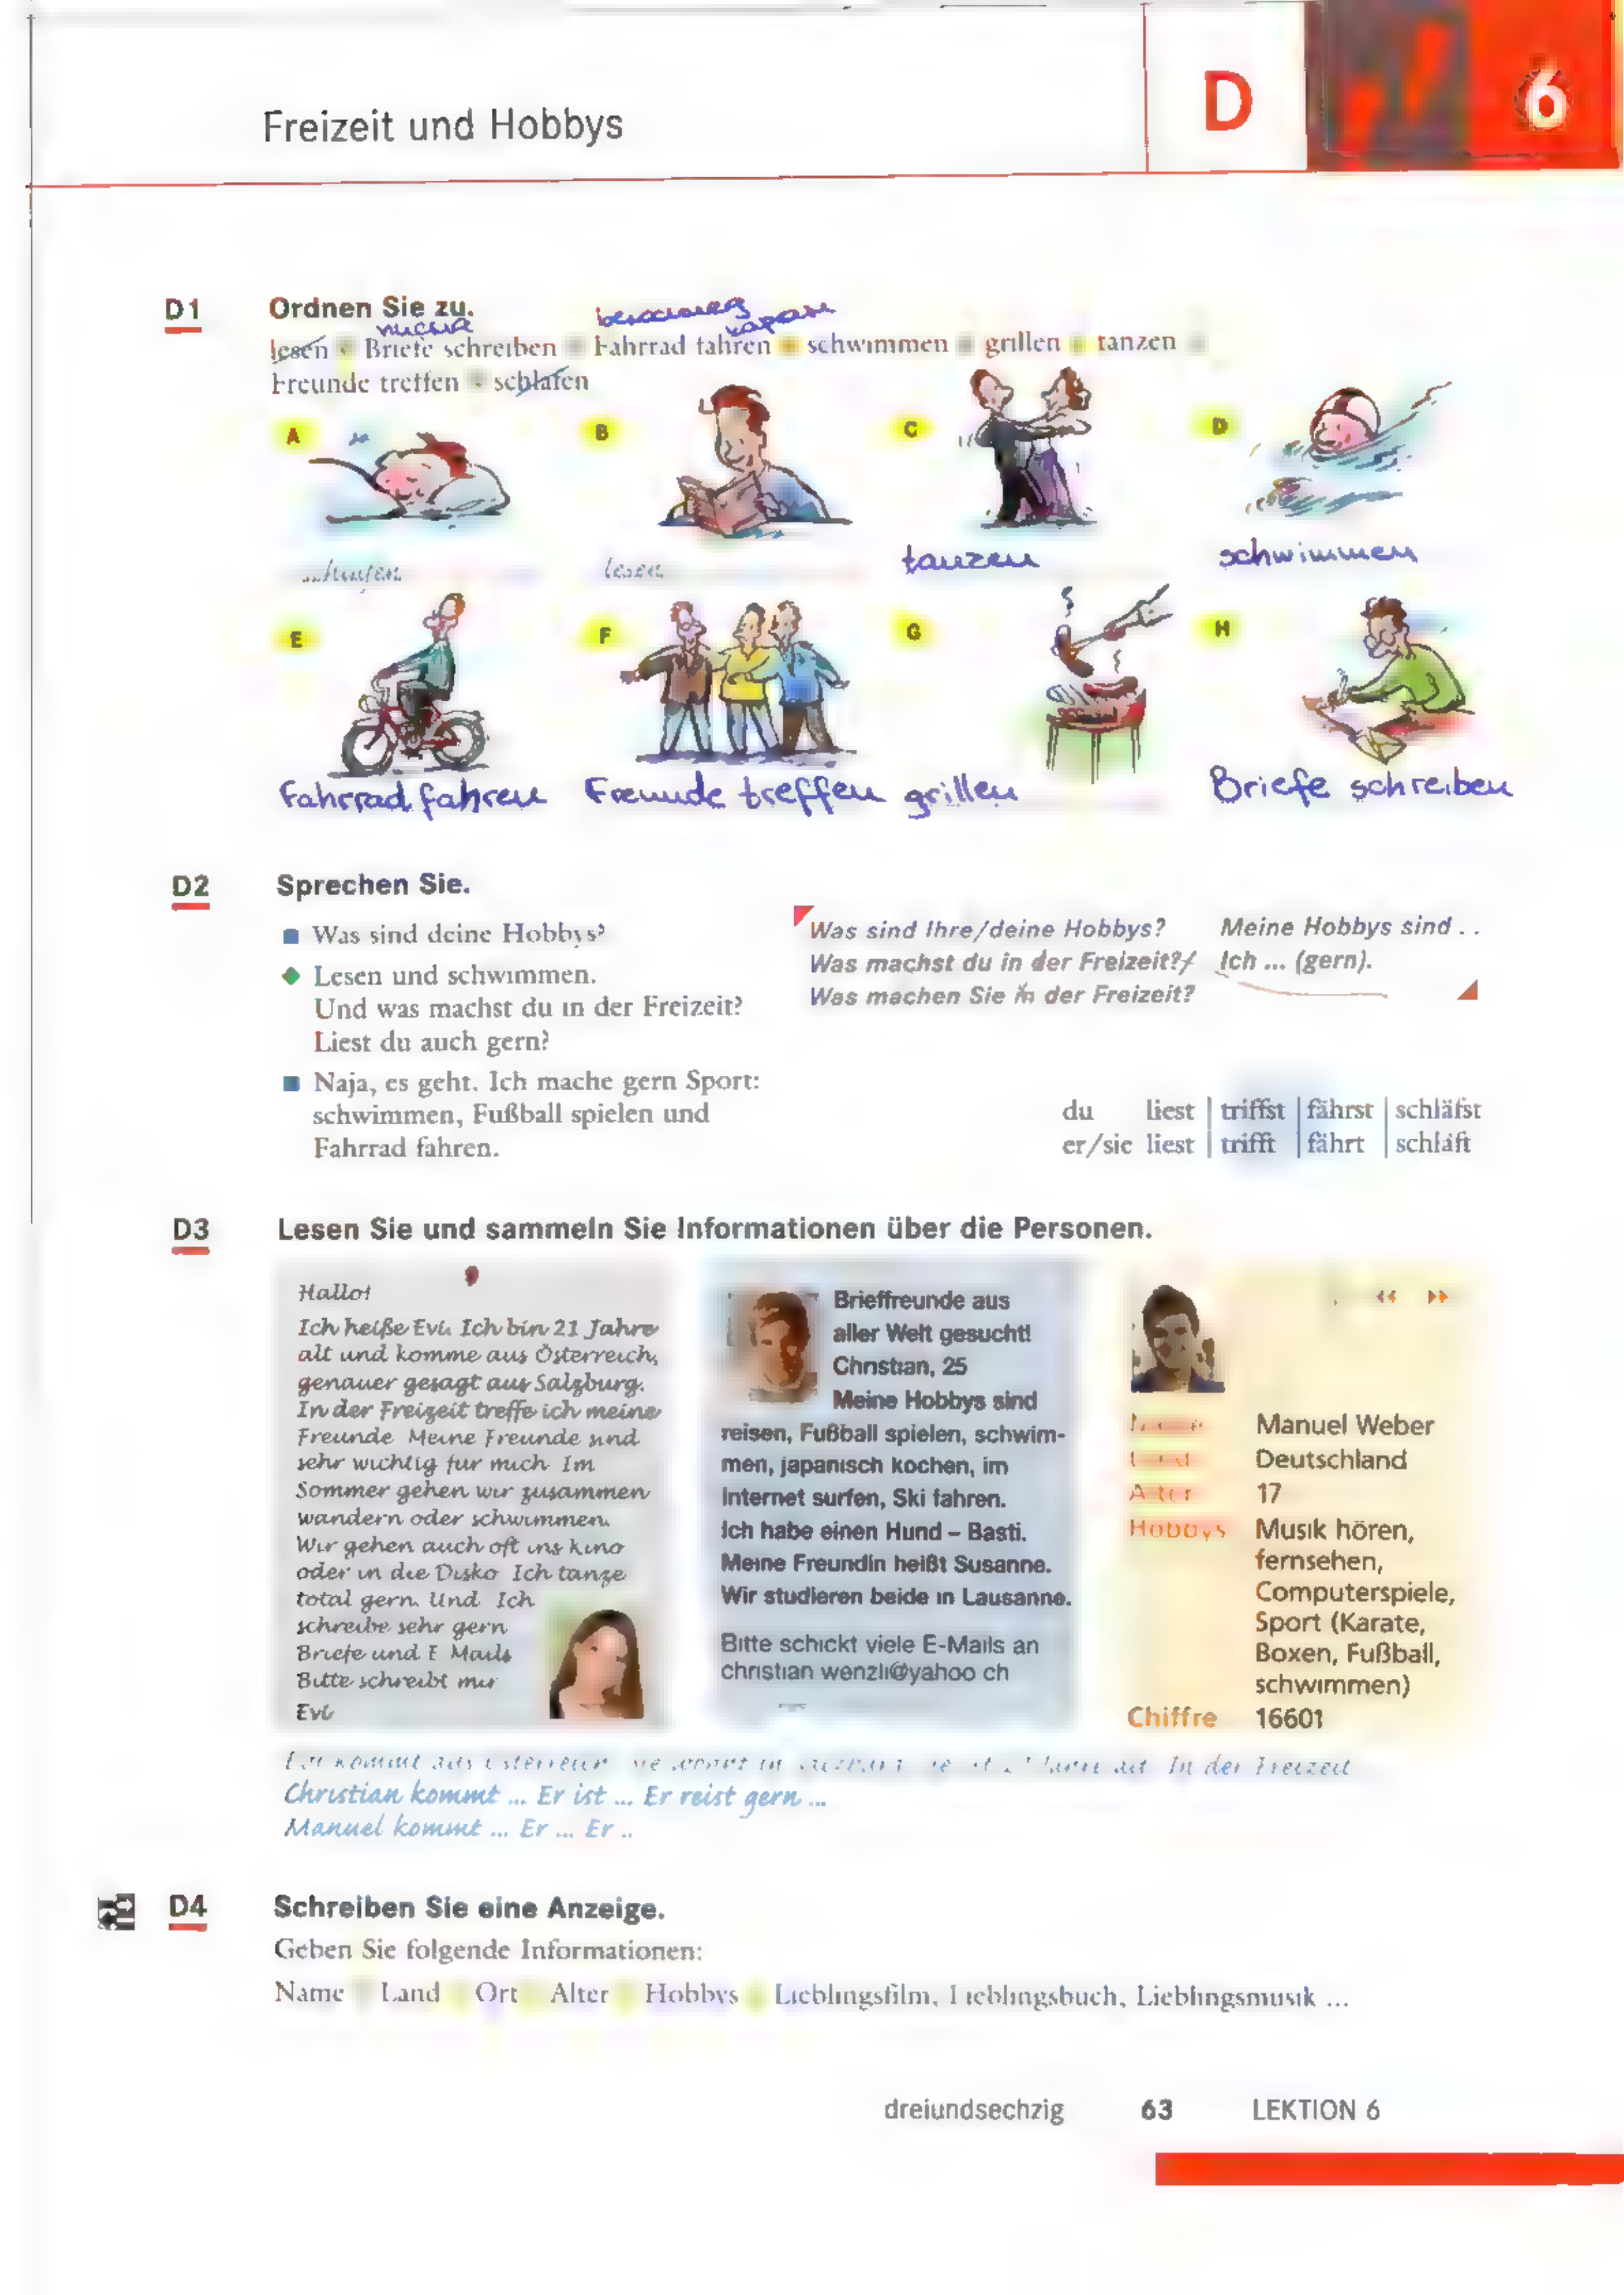 Freizeit und Hobbys
D
6
D1
Ordnen Sie zu.
lesen Briefe schreiben Fahrrad fahren schwimmen grillen tanzen
Freunde treffen schlafen
A
B
C
D
lesen
tanzen
schwimmen
E
F
G
H
Fahrrad fahren
Freunde treffen
grillen
Briefe schreiben
D2
Sprechen Sie.
Was sind deine Hobbys?
Lesen und schwimmen.
Und was machst du in der Freizeit?
Liest du auch gern?
Naja, es geht. Ich mache gern Sport:
schwimmen, Fußball spielen und
Fahrrad fahren.
Was sind Ihre/deine Hobbys? Meine Hobbys sind . .
Was machst du in der Freizeit?/ Ich ... (gern).
Was machen Sie in der Freizeit?
du liest triffst fährst schläfst
er/sie liest trifft fährt schläft
D3
Lesen Sie und sammeln Sie Informationen über die Personen.
Hallo!
Ich heiße Evi. Ich bin 21 Jahre
alt und komme aus Österreich,
genauer gesagt aus Salzburg.
In der Freizeit treffe ich meine
Freunde Meine Freunde sind
sehr wichtig für mich Im
Sommer gehen wir zusammen
wandern oder schwimmen.
Wir gehen auch oft ins Kino
oder in die Disko Ich tanze
total gern. Und Ich
schreibe sehr gern
Briefe und E Mails
Bitte schreibt mir
Evi
Brieffreunde aus
aller Welt gesucht!
Christian, 25
Meine Hobbys sind
reisen, Fußball spielen, schwim-
men, japanisch kochen, im
Internet surfen, Ski fahren.
Ich habe einen Hund – Basti.
Meine Freundin heißt Susanne.
Wir studieren beide in Lausanne.
Bitte schickt viele E-Mails an
christian wenzli@yahoo ch
Manuel Weber
Deutschland
Alter 17
Hobbys Musik hören,
fernsehen,
Computerspiele,
Sport (Karate,
Boxen, Fußball,
schwimmen)
Chiffre 16601
kommt aus Österreich In der Freizeit
Christian kommt ... Er ist ... Er reist gern ...
Manuel kommt ... Er ... Er ..
D4
Schreiben Sie eine Anzeige.
Geben Sie folgende Informationen:
Name Land Ort Alter Hobbys Lieblingsfilm, Lieblingsbuch, Lieblingsmusik ...
dreiundsechzig 63 LEKTION 6